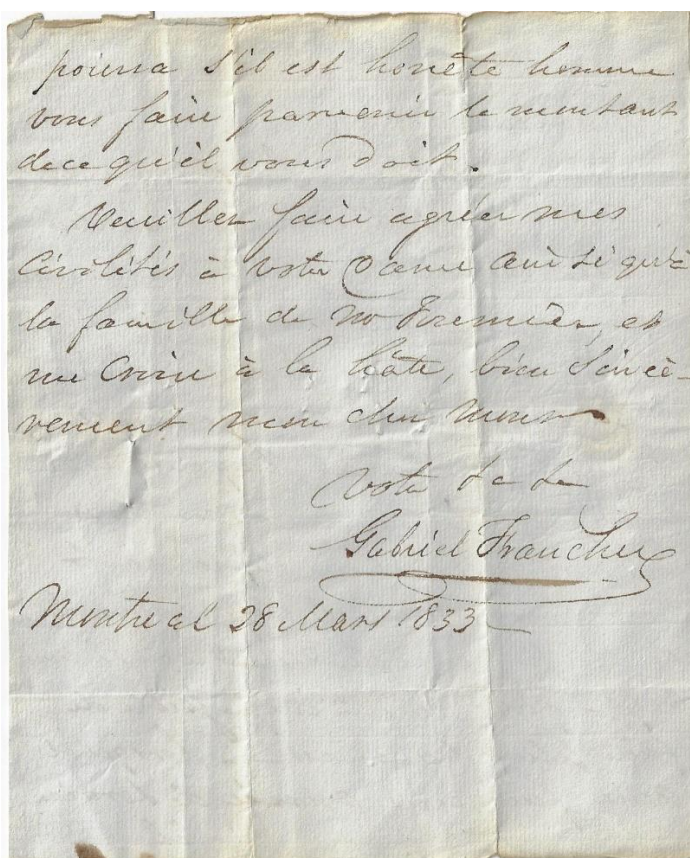 pourra s'il est honête homme
vous faire parvenir le montant
de ce qu'il vous doit.
Veuillez faire agréer mes
Civilités à votre Dame ainsi qu'à
la famille de Mr Fremier, et
me Croire à la hâte, bien Sincè-
rement mon cher Monsr
Votre
Gabriel Franchere
Montreal 28 Mars 1833